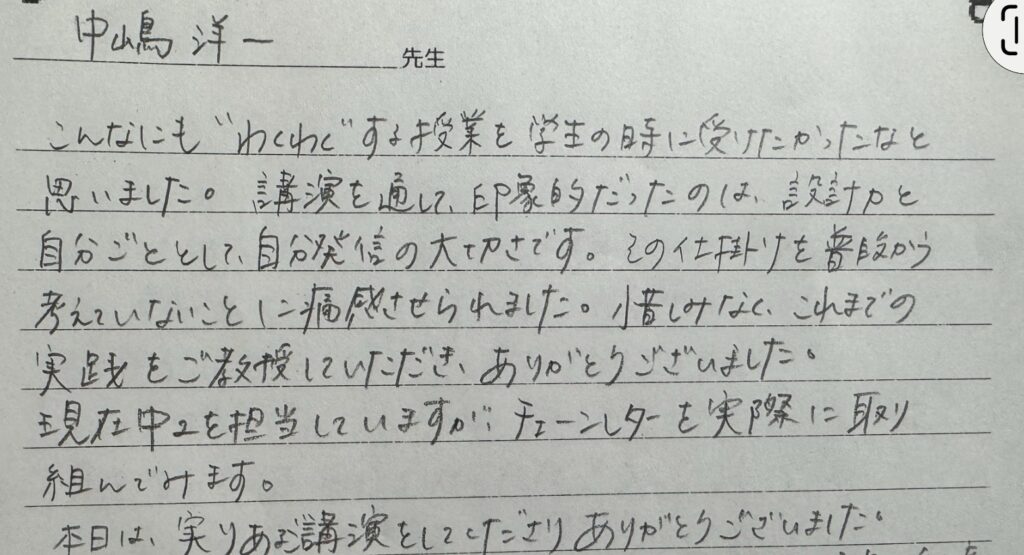 中嶋 洋一 先生
こんなにも"わくわく"する授業を学生の時に受けたかったなと
思いました。講演を通して、印象的だったのは、設計力と
自分ごととして、自分発信の大切さです。その仕掛けを普段から
考えていないことに痛感させられました。惜しみなく、これまでの
実践をご教授していただき、ありがとうございました。
現在中2を担当していますが、チェーンレターを実際に取り
組んでみます。
本日は、実りある講演をしてくださりありがとうございました。